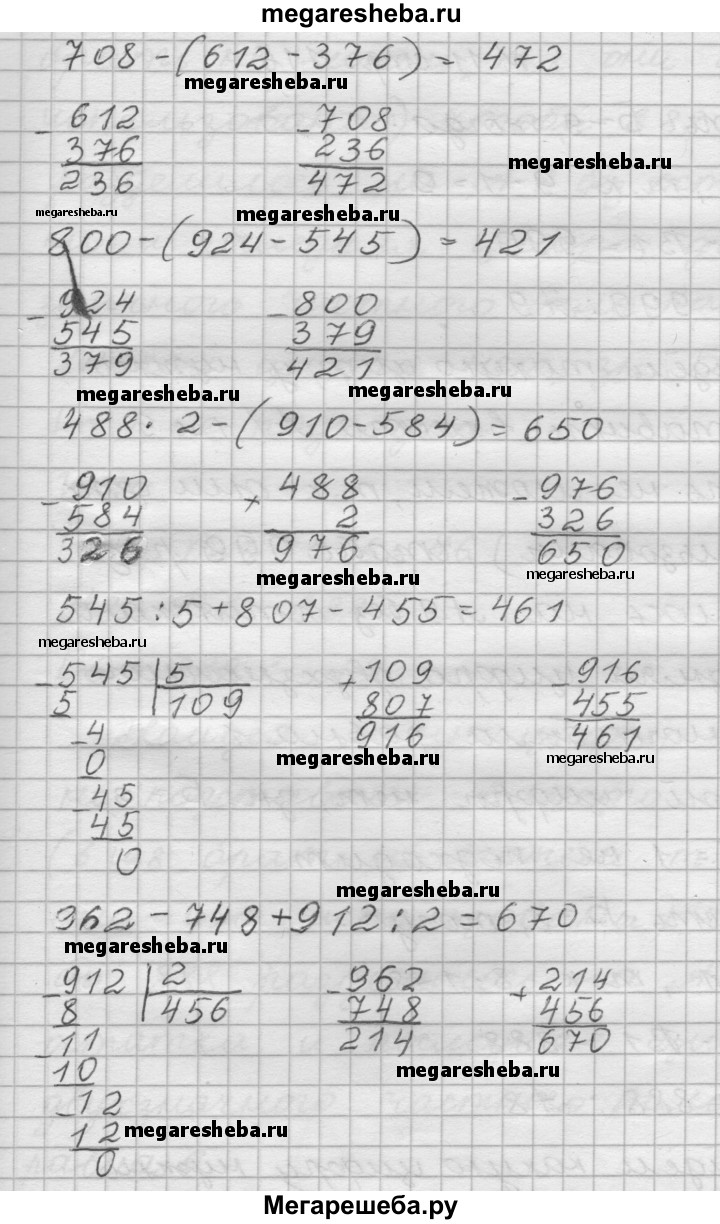 megaresheba.ru
708-(612-376)=472
megaresheba.ru
- 612 - 708
376 236
megaresheba.ru
236 472
megaresheba.ru megaresheba.ru
800-(924-545)=421
- 924 - 800
545 379
379 421
megaresheba.ru megaresheba.ru
488·2-(910-584)=650
- 910 × 488 - 976
584 2 326
326 976 650
megaresheba.ru megaresheba.ru
545:5+807-455=461
megaresheba.ru
- 545 5 + 109 - 916
5 109 807 455
- 4 916 461
0 megaresheba.ru megaresheba.ru
- 45
45
0
megaresheba.ru
362-748+912:2=670
megaresheba.ru
- 912 2 - 962 + 214
8 456 748 456
- 11 214 670
10 megaresheba.ru
- 12
12 megaresheba.ru
0
Мегарешеба.ру